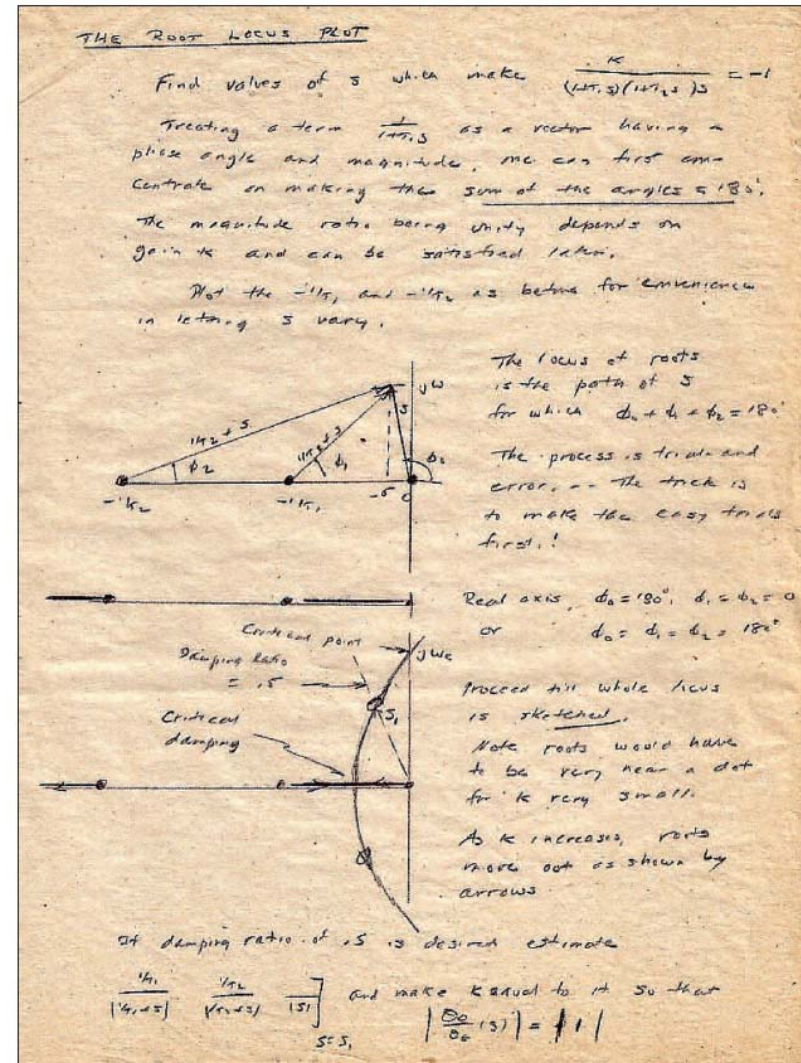 THE ROOT LOCUS PLOT
Find values of s which make K / (1+T₁s)(1+T₂s)s = -1
Treating a term 1/(1+T₁s) as a vector having a
phase angle and magnitude, we can first con-
centrate on making the sum of the angles = 180°.
The magnitude ratio being unity depends on
gain K and can be satisfied later.
Plot the -1/T₁ and -1/T₂ as before for convenience
in letting s vary.
The locus of roots
is the path of s
for which ϕ₀ + ϕ₁ + ϕ₂ = 180°
The process is trial and
error, -- The trick is
to make the easy trials
first.!
jω
1/T₂ + s
s
ϕ₂
ϕ₁
ϕ₀
-1/T₂
-1/T₁
0
Real axis, ϕ₀ = 180°, ϕ₁ = ϕ₂ = 0
or ϕ₀ = ϕ₁ = ϕ₂ = 180°
Critical point
jωc
Damping ratio
= .5
S₁
Critical
damping
Proceed till whole locus
is sketched.
Note roots would have
to be very near a dot
for K very small.
As K increases, roots
move out as shown by
arrows
If damping ratio of .5 is desired estimate
1/T₁ / |1/T₁+s| 1/T₂ / |1/T₂+s| 1/|s| ] s=s₁ and make K equal to it so that
| θ₀/θε (s) | = | 1 |